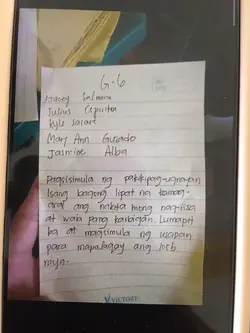 G-6
Salmera
Julius
Kyle
Mary Ann Guirado
Jasmine Alba
Pagsisimula ng pakikipag-ugnayan
Isang bagong lipat na kamag-
aral ang nakita mong nag-iisa
at wala pang kaibigan. Lumapit
ka at magsimula ng usapan
para mapalagay ang loob
niya.
VICTORY